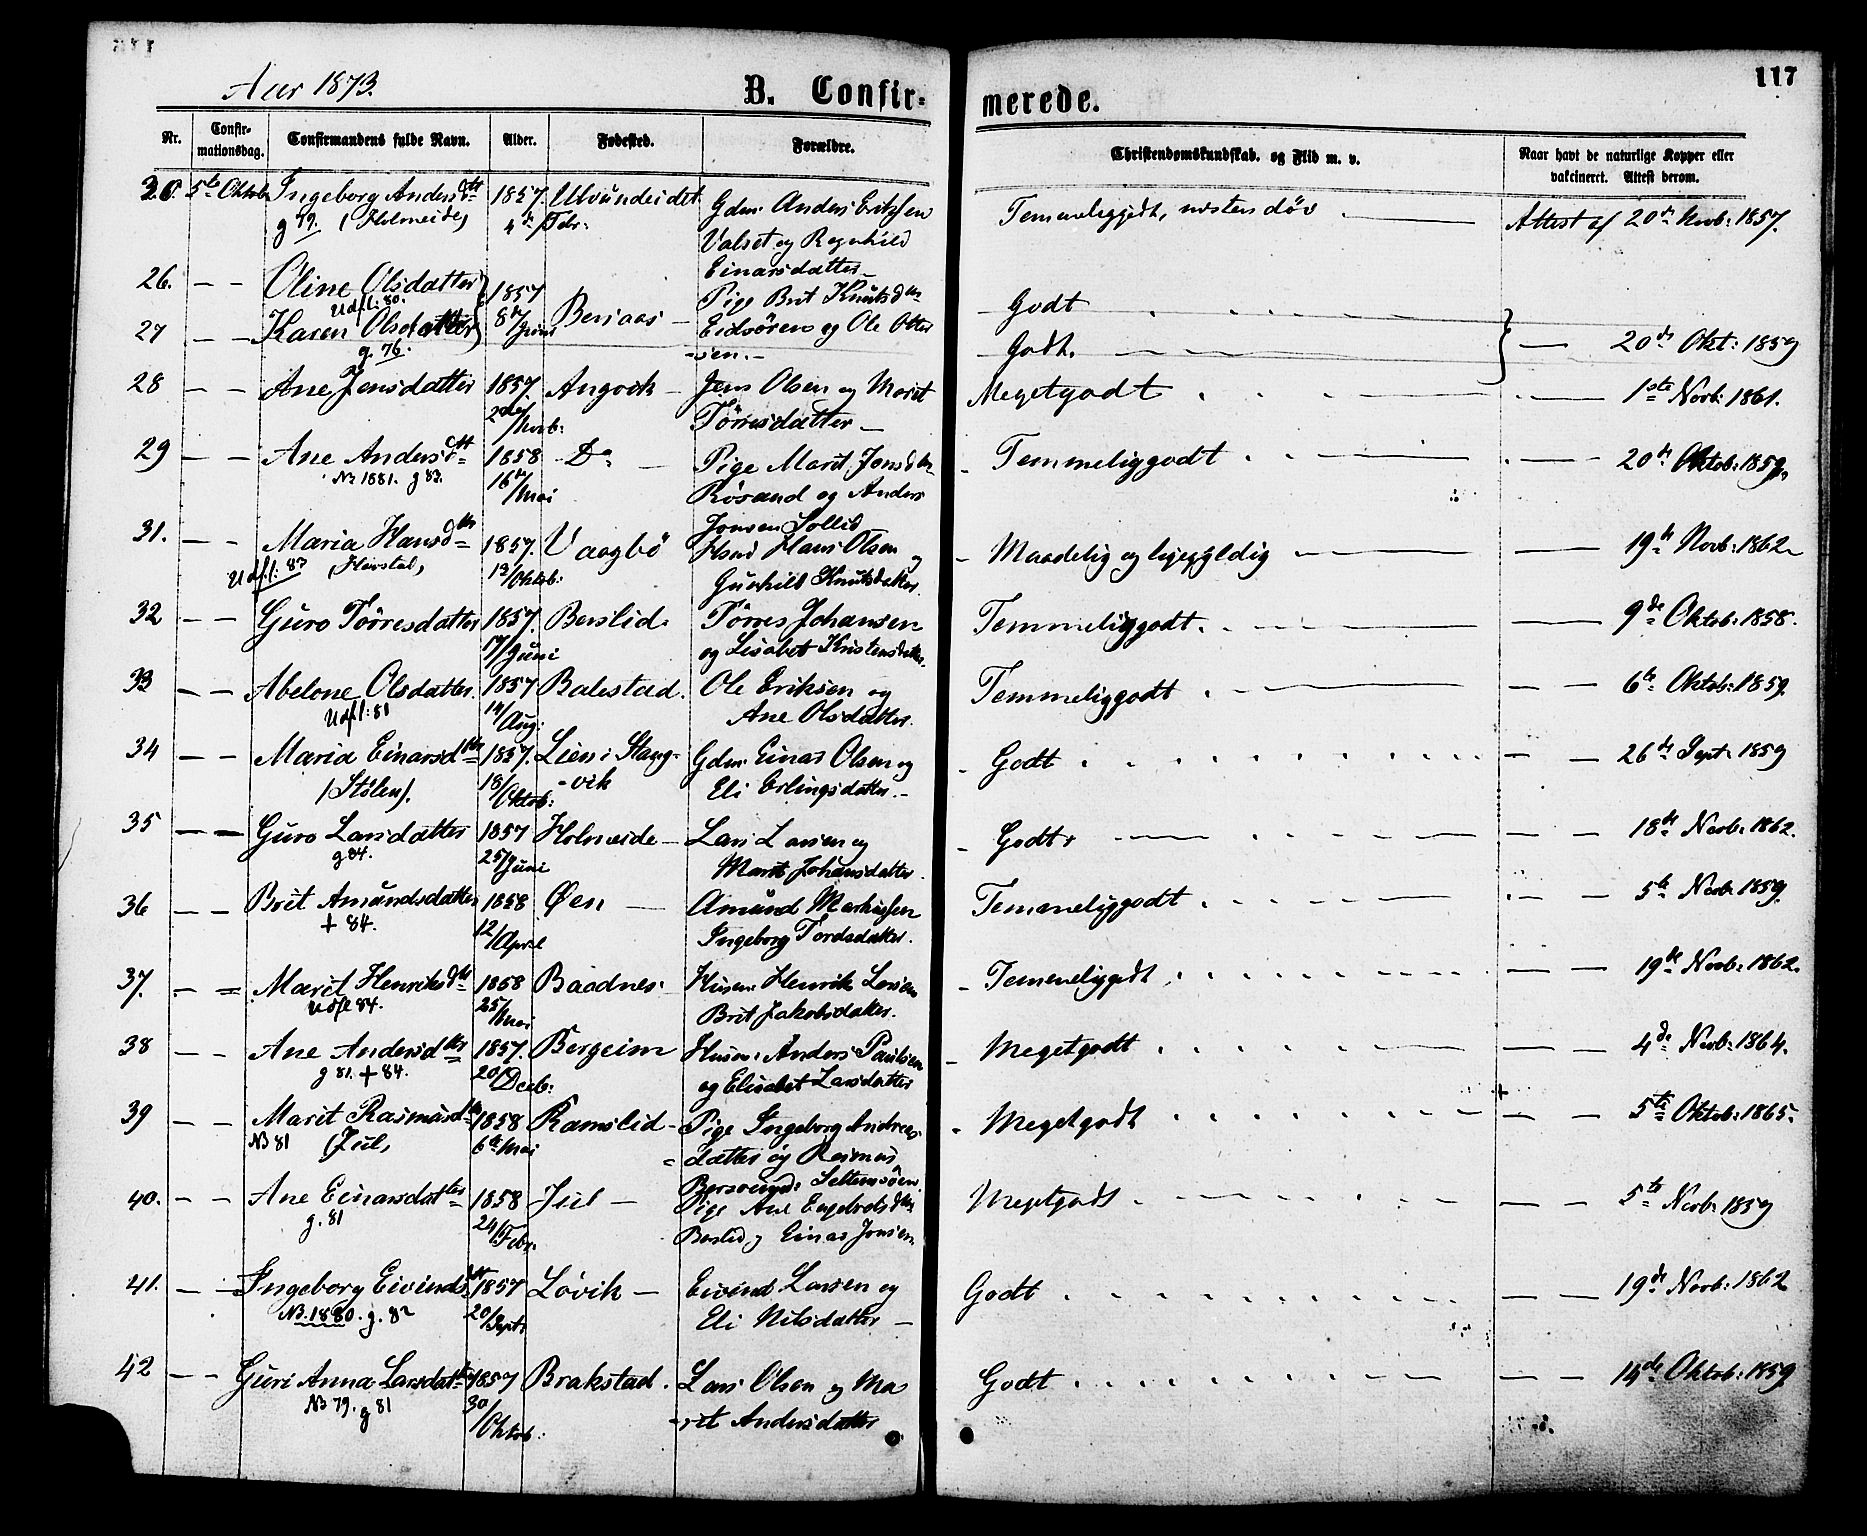 117
Aar 1873.
B. Confir-
merede.
Nr.
Confir-
mationsdag.
Confirmandens fulde Navn.
Alder.
Fødested.
Forældre.
Christendomskundskab. og Flid m. v.
Naar havt de naturlige Kopper eller
vakcineret. Attest derom.
5te Oktob. Ingeborg Andersdtt 1857. Ulvundeidet Gdm. Anders Eriksen Temmeliggodt, næsten døv Attest af 20de Novb: 1857.
g 79. (Holmeide) 4de/Febr: Valset og Regnhild
Einarsdatter
26. Oline Olsdatter 1857 Pige Brit Knutsdtr Godt
Udfl: 80.
27 Karen Olsdatter 8de/Juni Eidsören og Ole Otter Godt. 20de Okt: 1859
g. 76. -sen.-
28 Ane Jensdatter 1857. Angvik Jens Olsen og Marit Megetgodt 1ste Novb: 1861.
2den/Novb: Törresdatter
29 Ane Andersdtt 1858 Do Pige Marit Jonsdtr Temmeliggodt 20de Oktob: 1859.
No 1881. g 83. 16de/Mai Rösand og Anders
Jonsen Sollid
31. Maria Hansdtr 1857. Vaagbö Hans Olsen og Maadelig og ligegyldig 19de Novb: 1862
Udfl: 83 13/Oktob: Gunhild Knutsdatter
32 Guro Törresdatter 1857. Berslid. Törres Johansen Temmeliggodt. 9de Oktob: 1858.
17/Juni og Lisabet Kristensdatter.
33 Abelone Olsdatter. 1857 Balestad. Ole Eriksen og Temmeliggodt 6te Oktob: 1859.
Udfl: 81 14/Aug: Ane Olsdatter.
34 Maria Einarsdtr 1857. Lien i Stang- Gdm. Einar Olsen og Godt 26de Sept: 1859
(Stölen). 18/Oktob: -vik Eli Erlingsdatter.
35 Guro Larsdatter 1857 Holmeide Lars Larsen og Godt 18de Novb: 1862.
g 84. 25/Juni Marit Johansdatter
36 Brit Amundsdatter 1858 Øen Amund Markussen Temmeliggodt 5te Novb: 1859.
+ 84. 12/April Ingeborg Tordsdatter.
37. Marit Henriksdtr 1858 Baadnes Husm. Henrik Larsen Temmeliggodt 19de Novb: 1862.
Udfl 84. 25/Mai Brit Jakobsdatter.
38 Ane Andersdtr 1857. Bergeim Husm. Anders Paulsen Megetgodt 4de Novb: 1864.
g 81. + 84. 20/Decb: og Elisabet Larsdatter
39 Marit Rasmusdtr 1858 Ramslid Pige Ingeborg Andreas- Megetgodt 5te Oktob: 1865.
No 81 (Jul) 6te/Mai datter og Rasmus
40. Ane Einarsdatter 1858 Jul Pige Ane Engebretsdtr Megetgodt 5te Novb: 1859
g. 81 24/Febr. Berslid og Einar Jonsen
41. Ingeborg Eivindsdtt 1857 Lövik Eivind Larsen og Godt 19de Novb: 1862
No. 1880. g. 82 20/Septr Eli Nilsdatter
42 Guri Anna Larsdatter 1857 Brakstad. Lars Olsen og Ma Godt 14de Oktob: 1859
No 79. g 81 30/Oktob: -rit Andersdatter